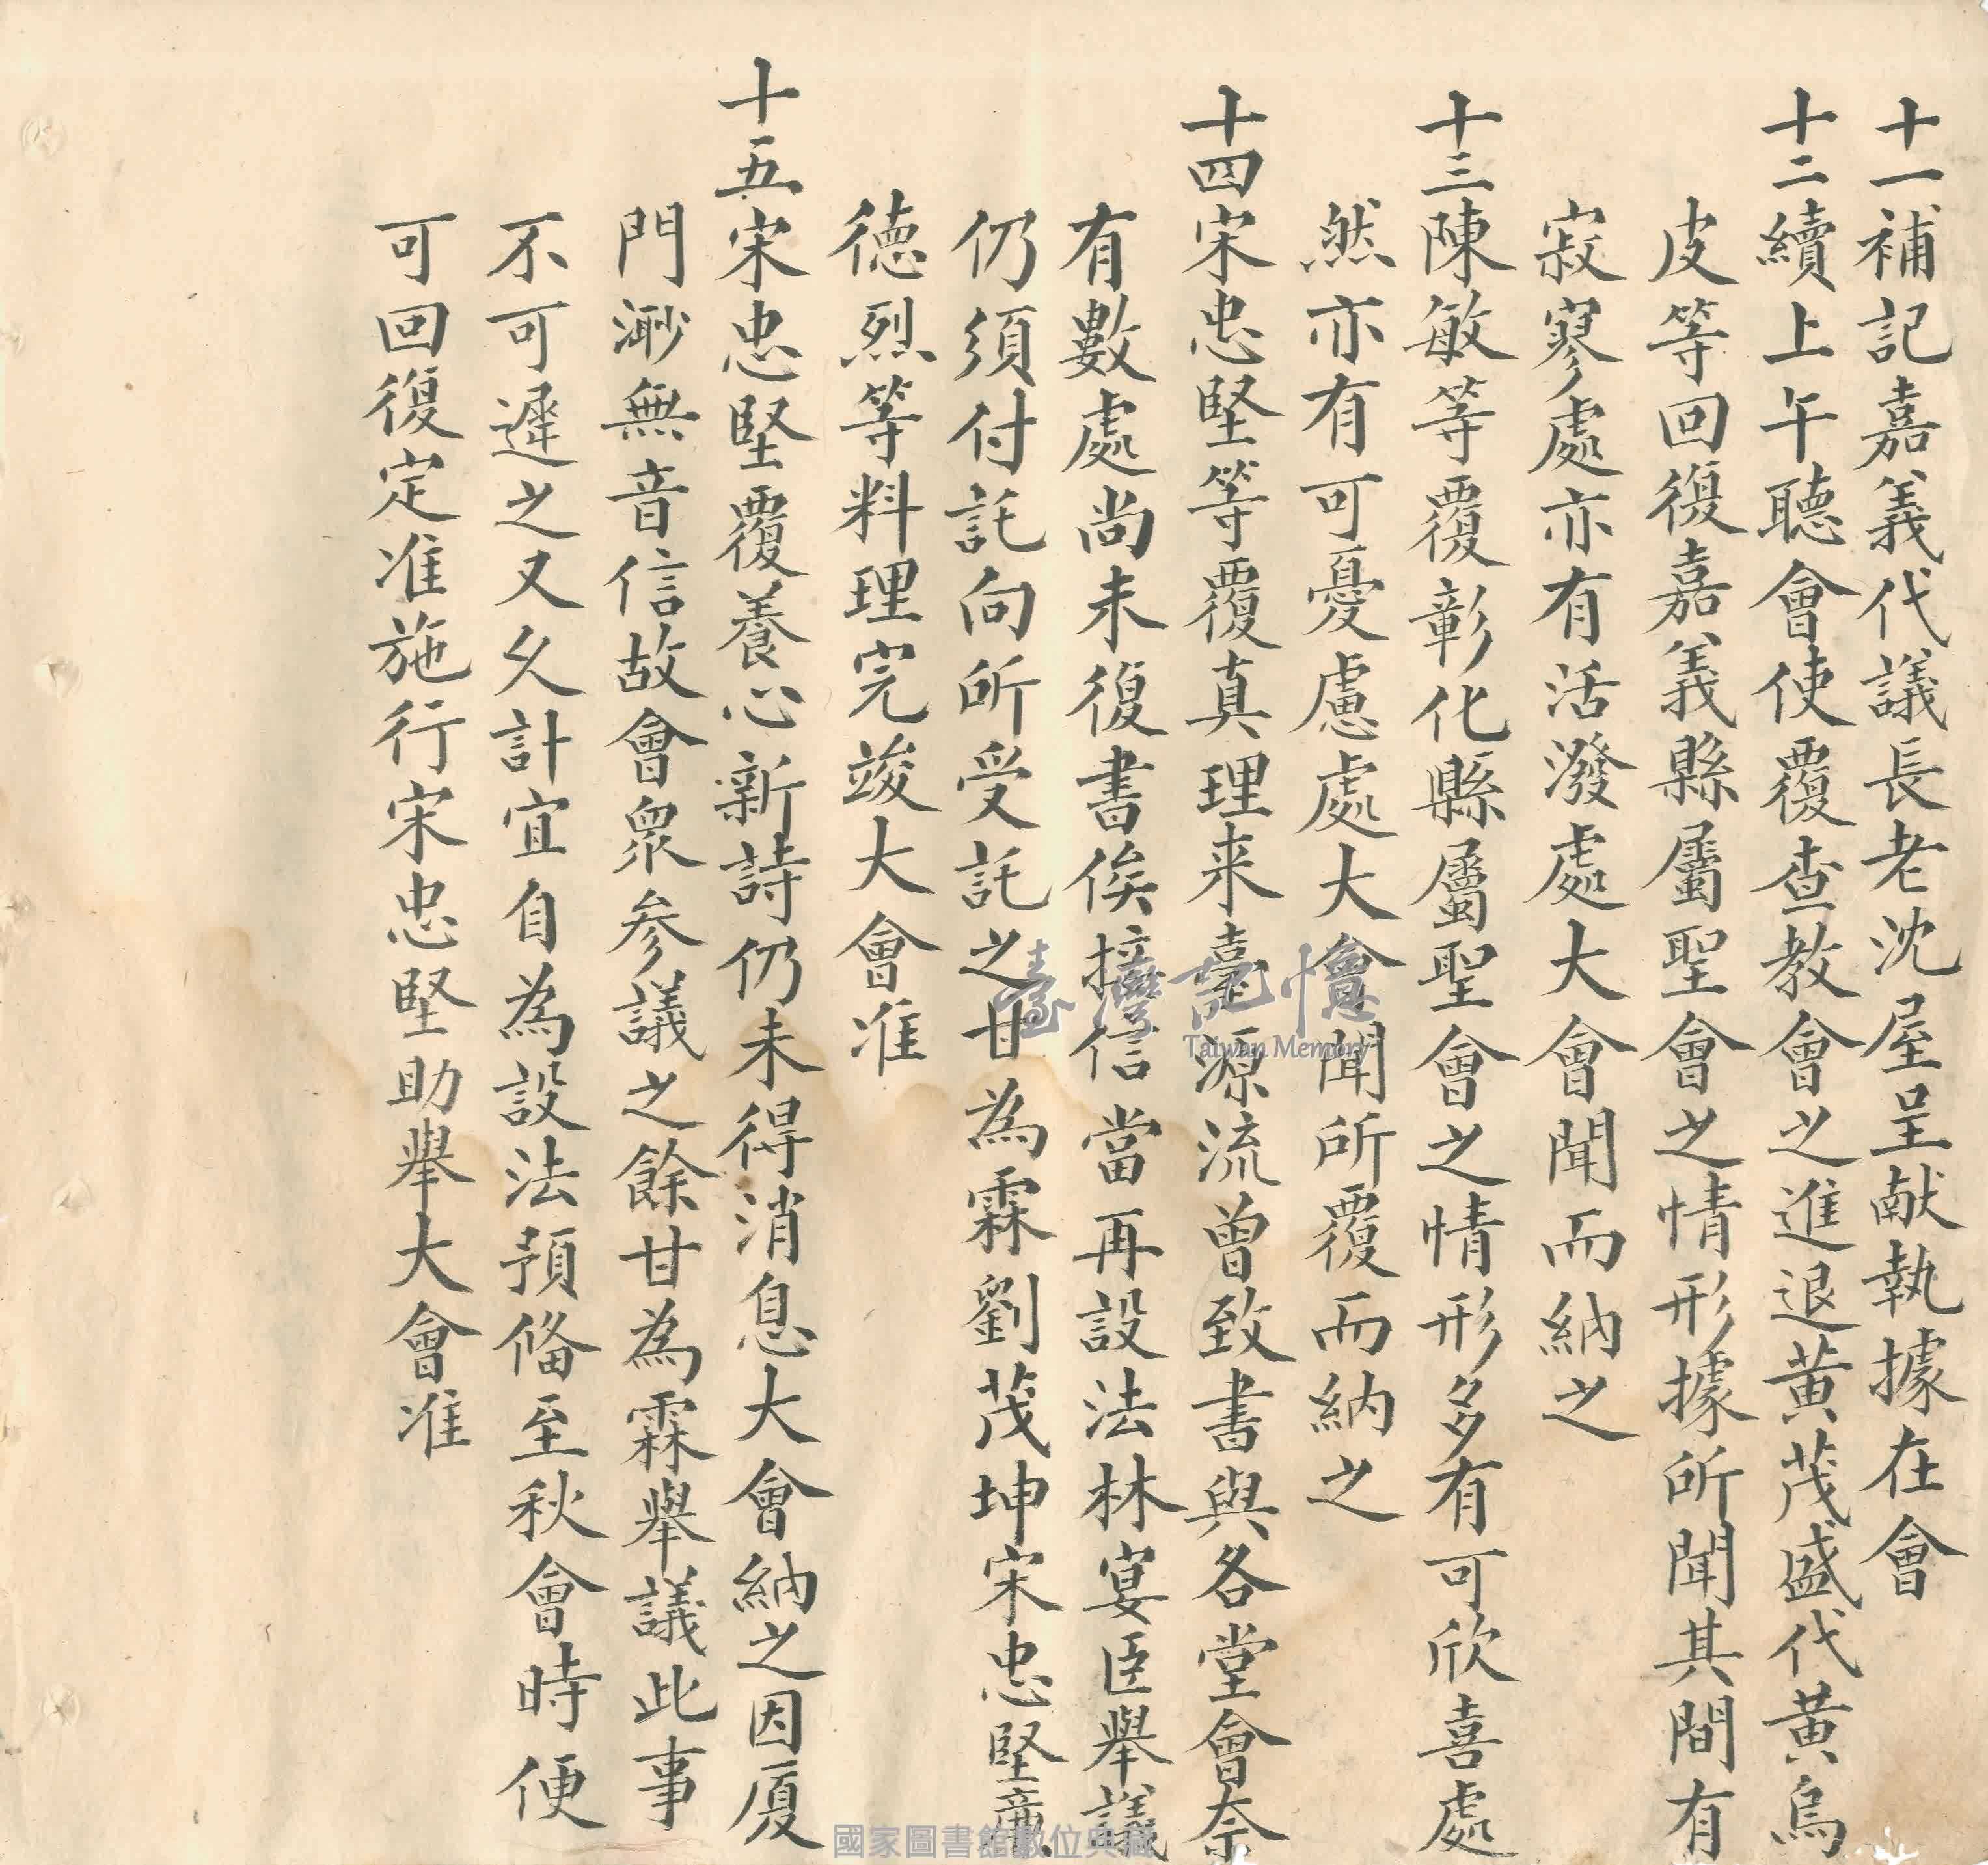 十一補記嘉義代議長老沈屋呈献執據在會
十二續上午聽會使覆查教會之進退黃茂盛代黃烏
皮等回復嘉義縣屬聖會之情形據所聞其間有
寂寥處亦有活潑處大會聞而納之
十三陳敏等覆彰化縣屬聖會之情形多有可欣喜處
然亦有可憂慮處大會聞所覆而納之
十四宋忠堅等覆真理来臺源流曾致書與各堂會奈
有數處尚未復書俟接信當再設法林宴臣舉議
仍須付託向所受託之甘為霖劉茂坤宋忠堅廉
德烈等料理完竣大會准
十五宋忠堅覆養心新詩仍未得消息大會納之因厦
門渺無音信故會眾参議之餘甘為霖舉議此事
不可遲之又久計宜自為設法預俻至秋會時便
可回復定准施行宋忠堅助舉大會准
臺灣記憶
Taiwan Memory
國家圖書館數位典藏